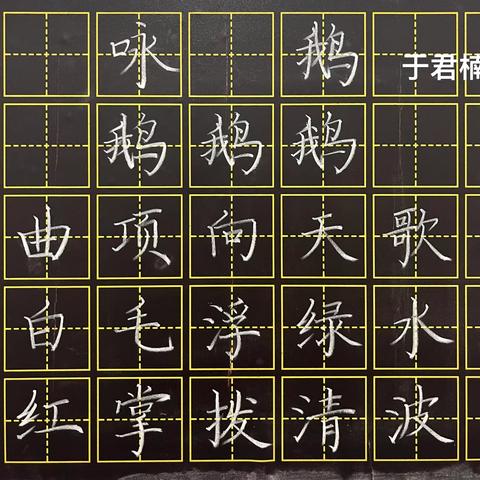 咏鹅
于君楠
鹅鹅鹅
曲项向天歌
白毛浮绿水
红掌拨清波